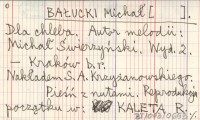 BAŁUCKI Michał [ ].
Dla chleba. Autor melodii:
Michał Świerzyński. Wyd. 2.
– Kraków b.r.
Nakładem S.A. Krzyżanowskiego.
Pieśń z nutami. Reprodukcja
początku w: KALETA R.